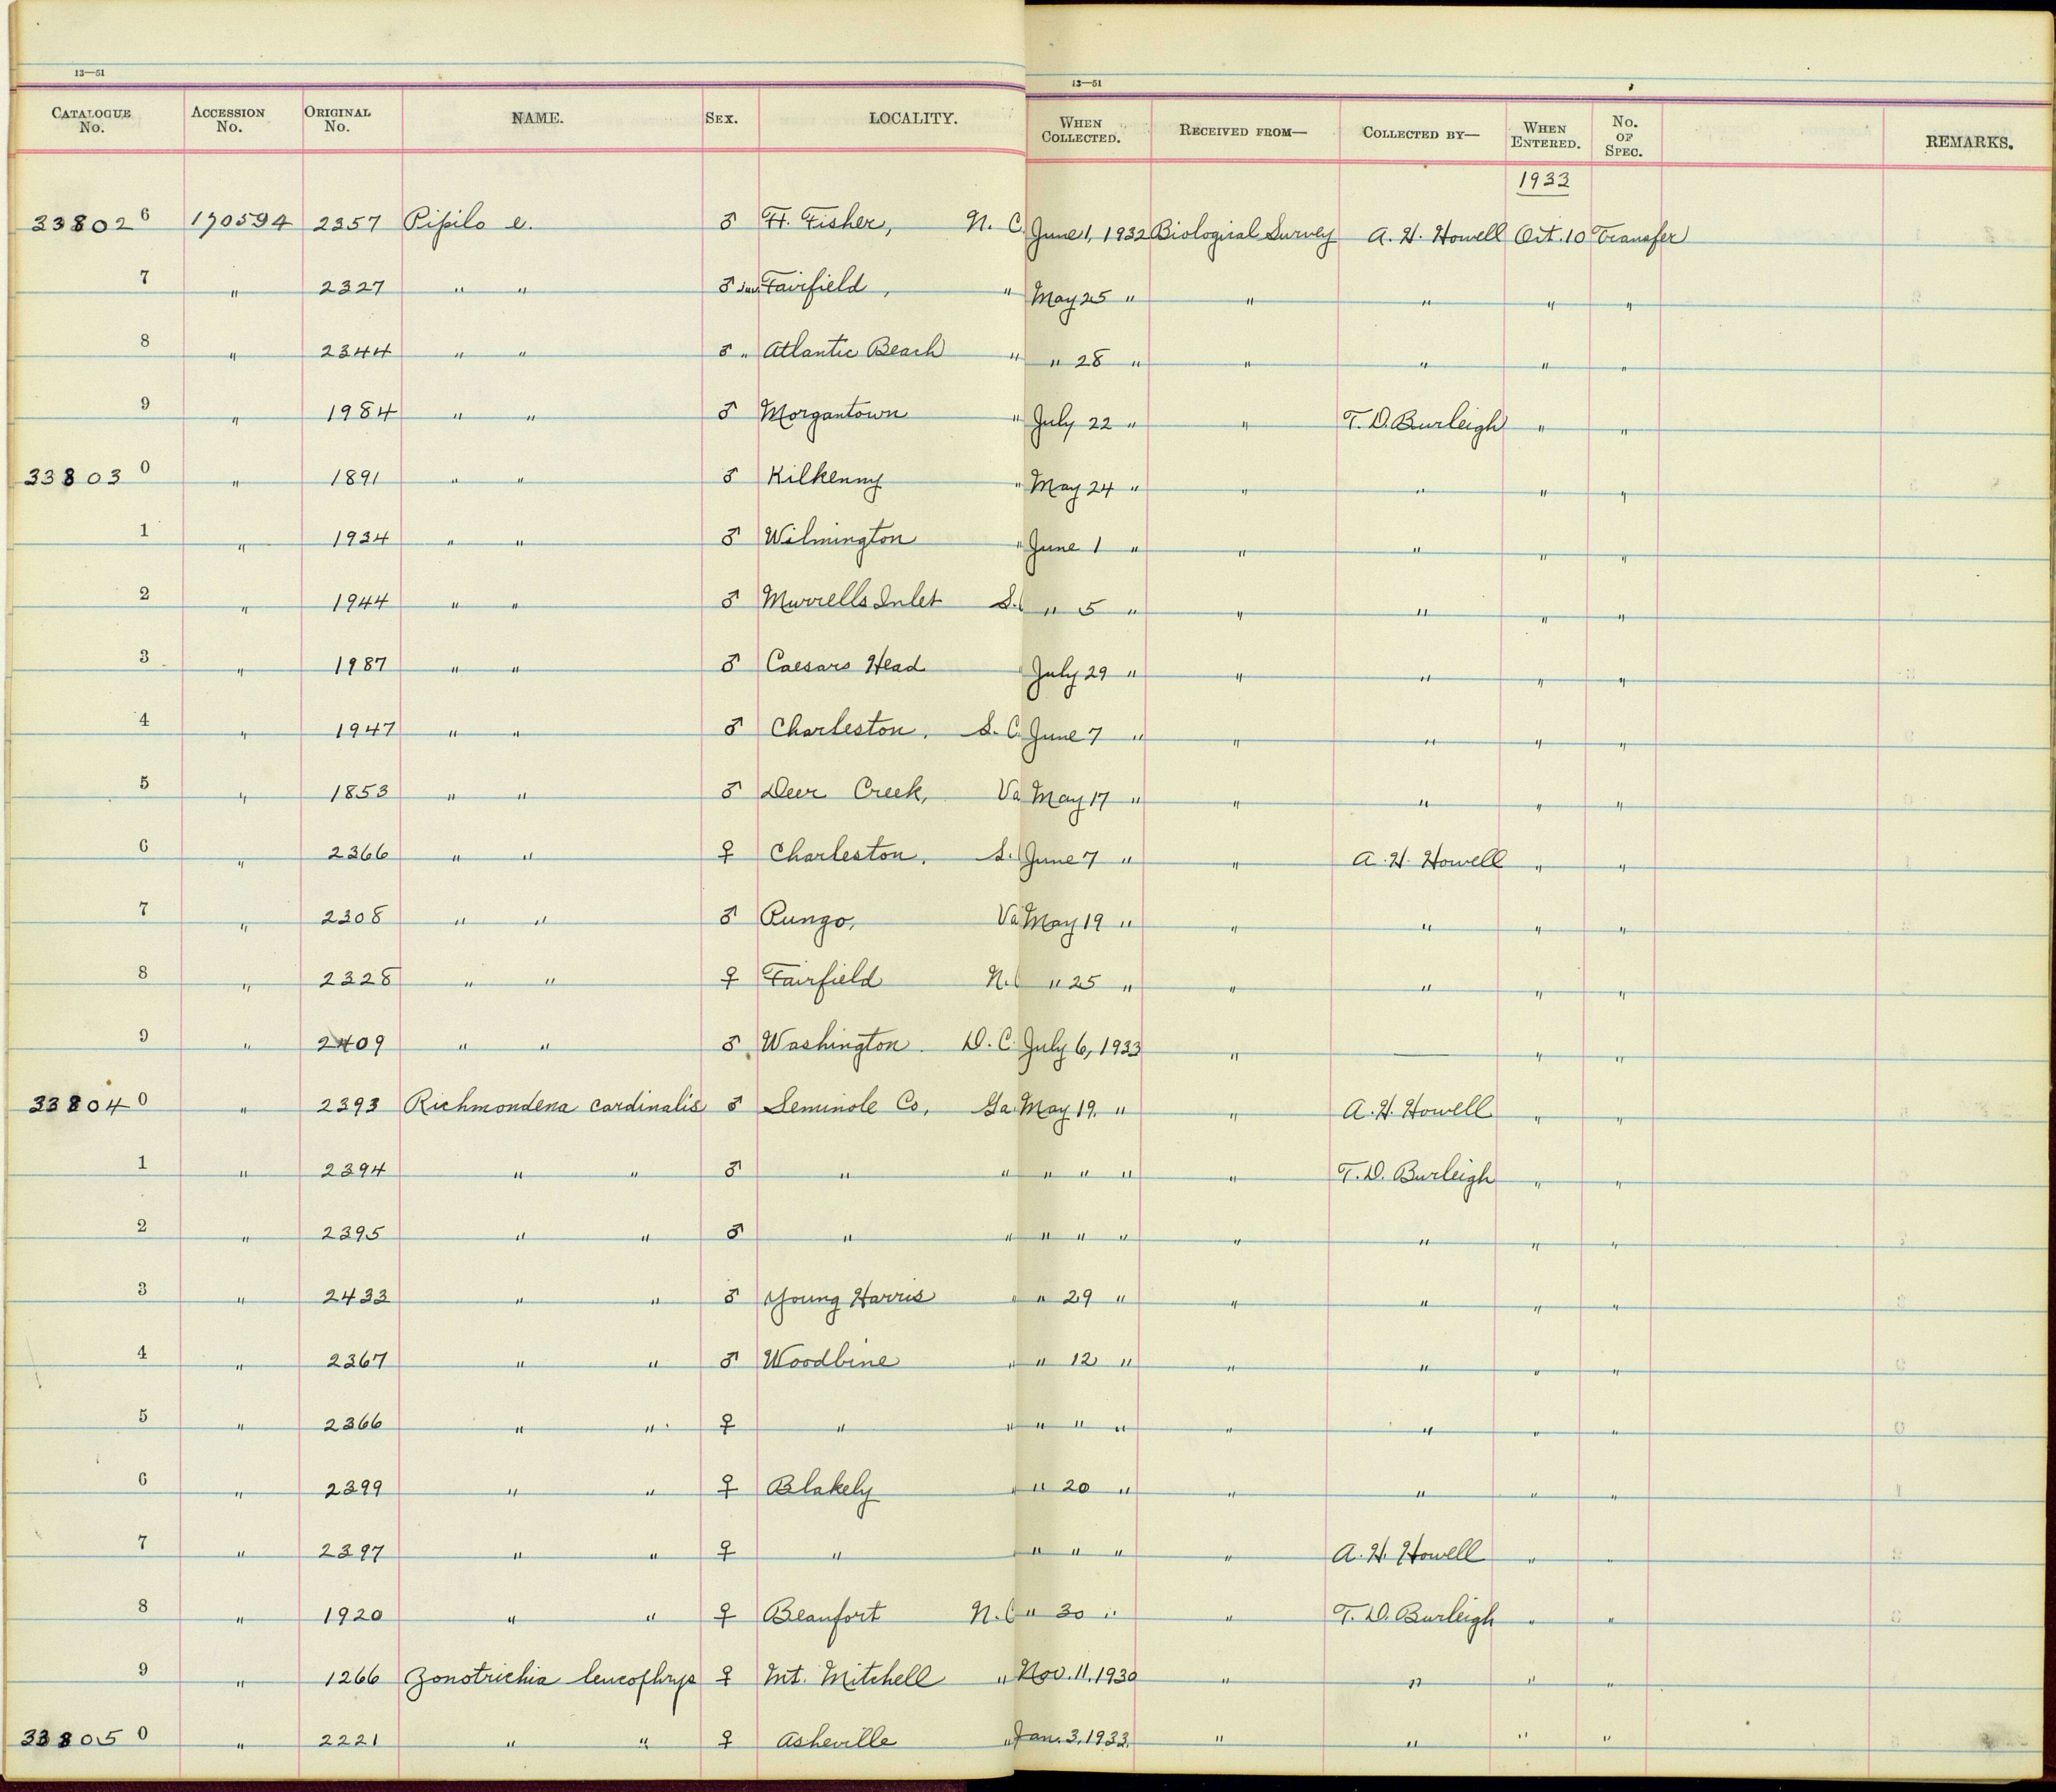 13—51 13—51
CATALOGUE No. ACCESSION No. ORIGINAL No. NAME. SEX. LOCALITY. WHEN COLLECTED. RECEIVED FROM— COLLECTED BY— WHEN ENTERED. No. OF SPEC. REMARKS.
1933
338026 170594 2357 Pipilo e. ♂ Ft. Fisher, N. C. June 1, 1932 Biological Survey A. H. Howell Oct. 10 Transfer
7 " 2327 " " ♂ Juv. Fairfield, " May 25 " " " " "
8 " 2344 " " ♂ " Atlantic Beach " " 28 " " " " "
9 " 1984 " " ♂ Morgantown " July 22 " " T. D. Burleigh " "
338030 " 1891 " " ♂ Kilkenny " May 24 " " " " "
1 " 1934 " " ♂ Wilmington " June 1 " " " " "
2 " 1944 " " ♂ Murrells Inlet S. C " 5 " " " " "
3 " 1987 " " ♂ Caesars Head " July 29 " " " " "
4 " 1947 " " ♂ Charleston, S. C. June 7 " " " " "
5 " 1853 " " ♂ Deer Creek, Va May 17 " " " " "
6 " 2366 " " ♀ Charleston, S. C June 7 " " A. H. Howell " "
7 " 2308 " " ♂ Pungo, Va May 19 " " " " "
8 " 2328 " " ♀ Fairfield N. C " 25 " " " " "
9 " 2409 " " ♂ Washington D. C. July 6, 1933 " — " "
338040 " 2393 Richmondena cardinalis ♂ Seminole Co, Ga. May 19. " " A. H. Howell " "
1 " 2394 " " ♂ " " " " " " T. D. Burleigh " "
2 " 2395 " " ♂ " " " " " " " " "
3 " 2433 " " ♂ Young Harris " " 29 " " " " "
4 " 2367 " " ♂ Woodbine " " 12 " " " " "
5 " 2366 " " ♀ " " " " " " " " "
6 " 2399 " " ♀ Blakely " " 20 " " " " "
7 " 2397 " " ♀ " " " " " A. H. Howell " "
8 " 1920 " " ♀ Beaufort N. C " 30 " " T. D. Burleigh " "
9 " 1266 Zonotrichia leucophrys ♀ Mt. Mitchell " Nov. 11, 1930 " " " "
338050 " 2221 " " ♀ Asheville " Jan. 3, 1933. " " " "